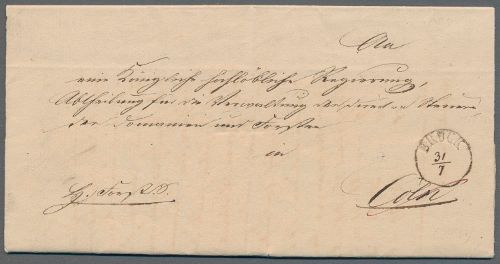 An
eine Königliche hochlöbliche Regierung,
Abtheilung für die Verwaltung der direct. Steuern
der Domainen und Forsten
in
BRÜCK
31/7
Cöln